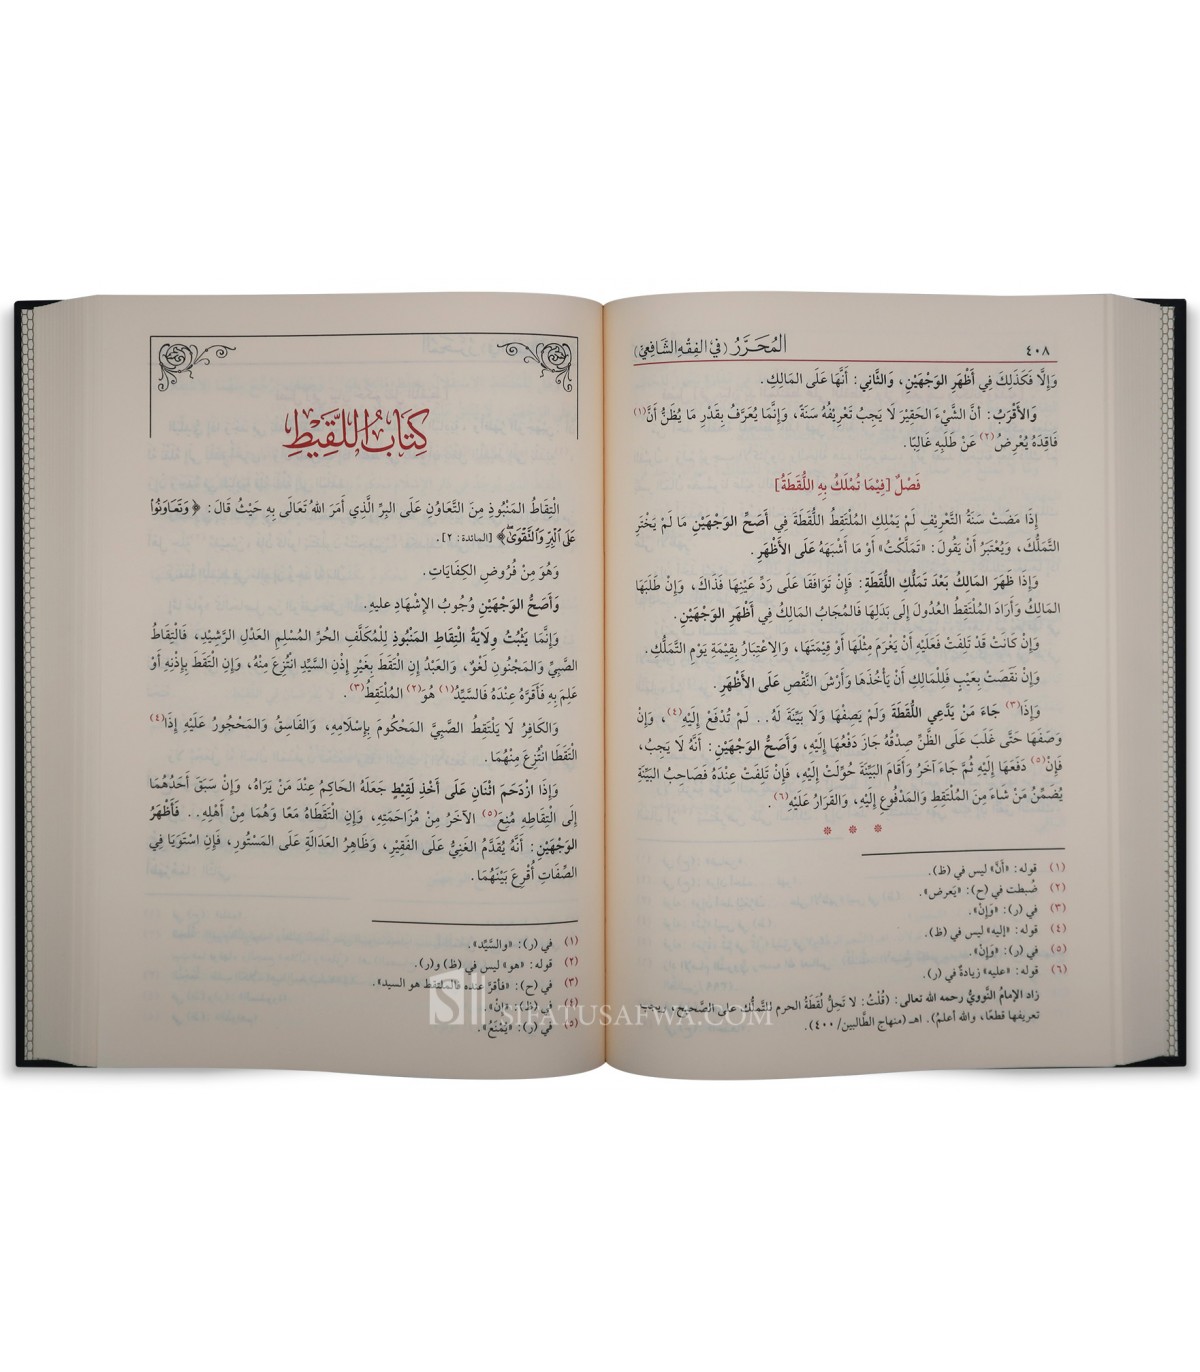 ٤٠٨
المُحَرَّرُ (فِي الفِقْهِ الشَّافِعِيِّ)
وَإِلَّا فَكَذَلِكَ فِي أَظْهَرِ الوَجْهَيْنِ، وَالثَّانِي: أَنَّهَا عَلَى المَالِكِ.
وَالأَقْرَبُ: أَنَّ الشَّيْءَ الحَقِيرَ لَا يَجِبُ تَعْرِيفُهُ سَنَةً، وَإِنَّمَا يُعَرَّفُ بِقَدْرِ مَا يُظَنُّ أَنَّ(١)
فَاقِدَهُ يُعْرِضُ(٢) عَنْ طَلَبِهِ غَالِبًا.
فَصْلٌ [فِيْمَا تُمْلَكُ بِهِ اللُّقَطَةُ]
إِذَا مَضَتْ سَنَةُ التَّعْرِيفِ لَمْ يَمْلِكِ المُلْتَقِطُ اللُّقَطَةَ فِي أَصَحِّ الوَجْهَيْنِ مَا لَمْ يَخْتَرِ
التَّمَلُّكَ، وَيُعْتَبَرُ أَنْ يَقُولَ: «تَمَلَّكْتُ» أَوْ مَا أَشْبَهَهُ عَلَى الأَظْهَرِ.
وَإِذَا ظَهَرَ المَالِكُ بَعْدَ تَمَلُّكِ اللُّقَطَةِ: فَإِنْ تَوَافَقَا عَلَى رَدِّ عَيْنِهَا فَذَاكَ، وَإِنْ طَلَبَهَا
المَالِكُ وَأَرَادَ المُلْتَقِطُ العُدُولَ إِلَى بَدَلِهَا فَالمُجَابُ المَالِكُ فِي أَظْهَرِ الوَجْهَيْنِ.
وَإِنْ كَانَتْ قَدْ تَلِفَتْ فَعَلَيْهِ أَنْ يَغْرَمَ مِثْلَهَا أَوْ قِيْمَتَهَا، وَالِاعْتِبَارُ بِقِيْمَةِ يَوْمِ التَّمَلُّكِ.
وَإِنْ نَقَصَتْ بِعَيْبٍ فَلِلْمَالِكِ أَنْ يَأْخُذَهَا وَأَرْشَ النَّقْصِ عَلَى الأَظْهَرِ.
وَإِذَا(٣) جَاءَ مَنْ يَدَّعِي اللُّقَطَةَ وَلَمْ يَصِفْهَا وَلَا بَيِّنَةَ لَهُ.. لَمْ تُدْفَعْ إِلَيْهِ(٤)، وَإِنْ
وَصَفَهَا حَتَّى غَلَبَ عَلَى الظَّنِّ صِدْقُهُ جَازَ دَفْعُهَا إِلَيْهِ، وَأَصَحُّ الوَجْهَيْنِ: أَنَّهُ لَا يَجِبُ،
فَإِنْ(٥) دَفَعَهَا إِلَيْهِ ثُمَّ جَاءَ آخَرُ وَأَقَامَ البَيِّنَةَ حُوِّلَتْ إِلَيْهِ، فَإِنْ تَلِفَتْ عِنْدَهُ فَصَاحِبُ البَيِّنَةِ
يُضَمِّنُ مَنْ شَاءَ مِنَ المُلْتَقِطِ وَالمَدْفُوعِ إِلَيْهِ، وَالقَرَارُ عَلَيْهِ(٦).
* * *
(١) قوله: «أَنَّ» ليس في (ظ).
(٢) ضُبطت في (ح): «يَعرض».
(٣) في (ر): «وَإِنْ».
(٤) قوله: «إليه» ليس في (ظ).
(٥) في (ر): «وَإِنْ».
(٦) قوله: «عليه» زيادةٌ في (ر).
زاد الإمامُ النَّوويُّ رحمه الله تعالى: (قُلْتُ: لا تَحِلُّ لُقَطَةُ الحرم للتَّملُّك على الصَّحيح، ويجب
تعريفها قطعًا، والله أعلمُ). اهـ (منهاج الطَّالبين/٤٠٠).
كِتَابُ اللَّقِيْطِ
الْتِقَاطُ المَنْبُوذِ مِنَ التَّعَاوُنِ عَلَى البِرِّ الَّذِي أَمَرَ اللهُ تَعَالَى بِهِ حَيْثُ قَالَ: ﴿وَتَعَاوَنُواْ
عَلَى ٱلْبِرِّ وَٱلتَّقْوَىٰ﴾ [المائدة: ٢].
وَهُوَ مِنْ فُرُوضِ الكِفَايَاتِ.
وَأَصَحُّ الوَجْهَيْنِ وُجُوبُ الإِشْهَادِ عليهِ.
وَإِنَّمَا يَثْبُتُ وِلَايَةُ الْتِقَاطِ المَنْبُوذِ لِلْمُكَلَّفِ الحُرِّ المُسْلِمِ العَدْلِ الرَّشِيْدِ، فَالْتِقَاطُ
الصَّبِيِّ وَالمَجْنُونِ لَغْوٌ، وَالعَبْدُ إِنِ التَقَطَ بِغَيْرِ إِذْنِ السَّيِّدِ انْتُزِعَ مِنْهُ، وَإِنِ التَقَطَ بِإِذْنِهِ أَوْ
عَلِمَ بِهِ فَأَقَرَّهُ عِنْدَهُ فَالسَّيِّدُ(١) هُوَ(٢) المُلْتَقِطُ(٣).
وَالكَافِرُ لَا يَلْتَقِطُ الصَّبِيَّ المَحْكُومَ بِإِسْلَامِهِ، وَالفَاسِقُ وَالمَحْجُورُ عَلَيْهِ إِذَا(٤)
الْتَقَطَا انْتُزِعَ مِنْهُمَا.
وَإِذَا ازْدَحَمَ اثْنَانِ عَلَى أَخْذِ لَقِيْطٍ جَعَلَهُ الحَاكِمُ عِنْدَ مَنْ يَرَاهُ، وَإِنْ سَبَقَ أَحَدُهُمَا
إِلَى الْتِقَاطِهِ مُنِعَ(٥) الآخَرُ مِنْ مُزَاحَمَتِهِ، وَإِنِ التَقَطَاهُ مَعًا وَهُمَا مِنْ أَهْلِهِ.. فَأَظْهَرُ
الوَجْهَيْنِ: أَنَّهُ يُقَدَّمُ الغَنِيُّ عَلَى الفَقِيْرِ، وَظَاهِرُ العَدَالَةِ عَلَى المَسْتُورِ، فَإِنِ اسْتَوَيَا فِي
الصِّفَاتِ أُقْرِعَ بَيْنَهُمَا.
(١) في (ر): «والسَّيِّد».
(٢) قوله: «هو» ليس في (ظ) و(ر).
(٣) في (ح): «فأقرَّ عنده فالملتقط هو السيد».
(٤) في (ظ): «إِنْ».
(٥) في (ر): «يُمْنَعُ».
SIFATUSAFWA.COM